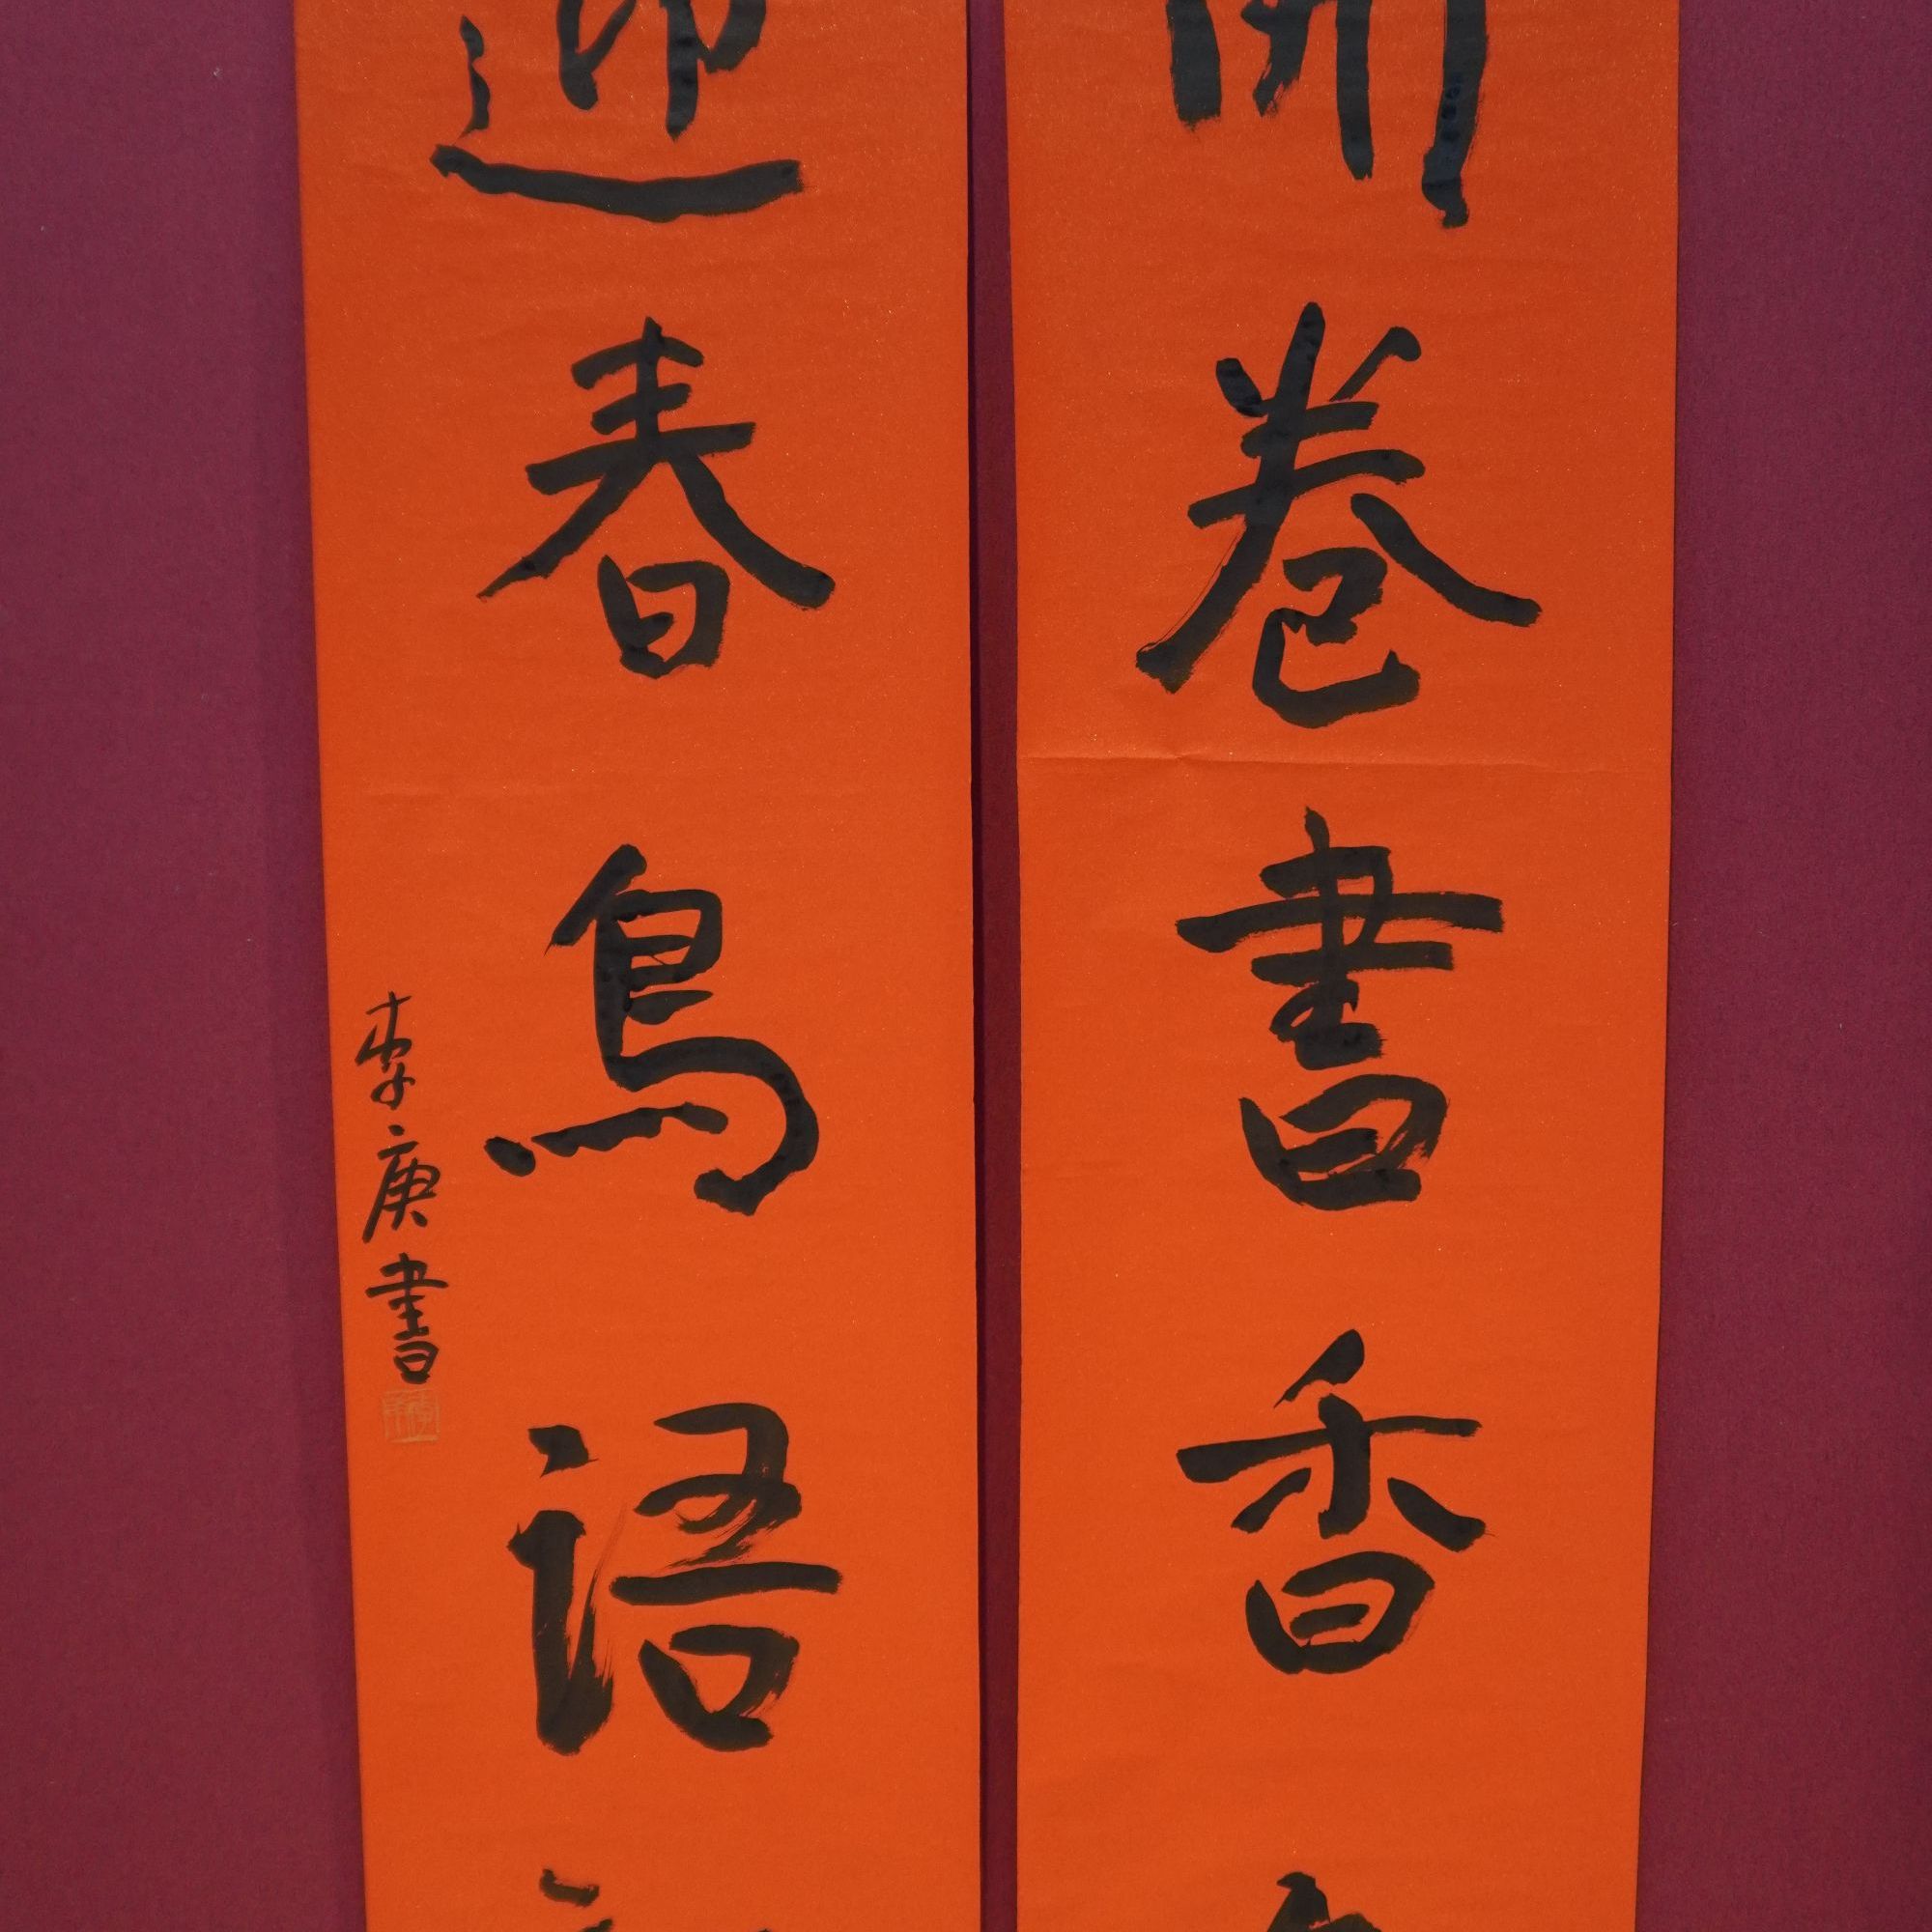 開卷書香
迎春鳥語
李庚書